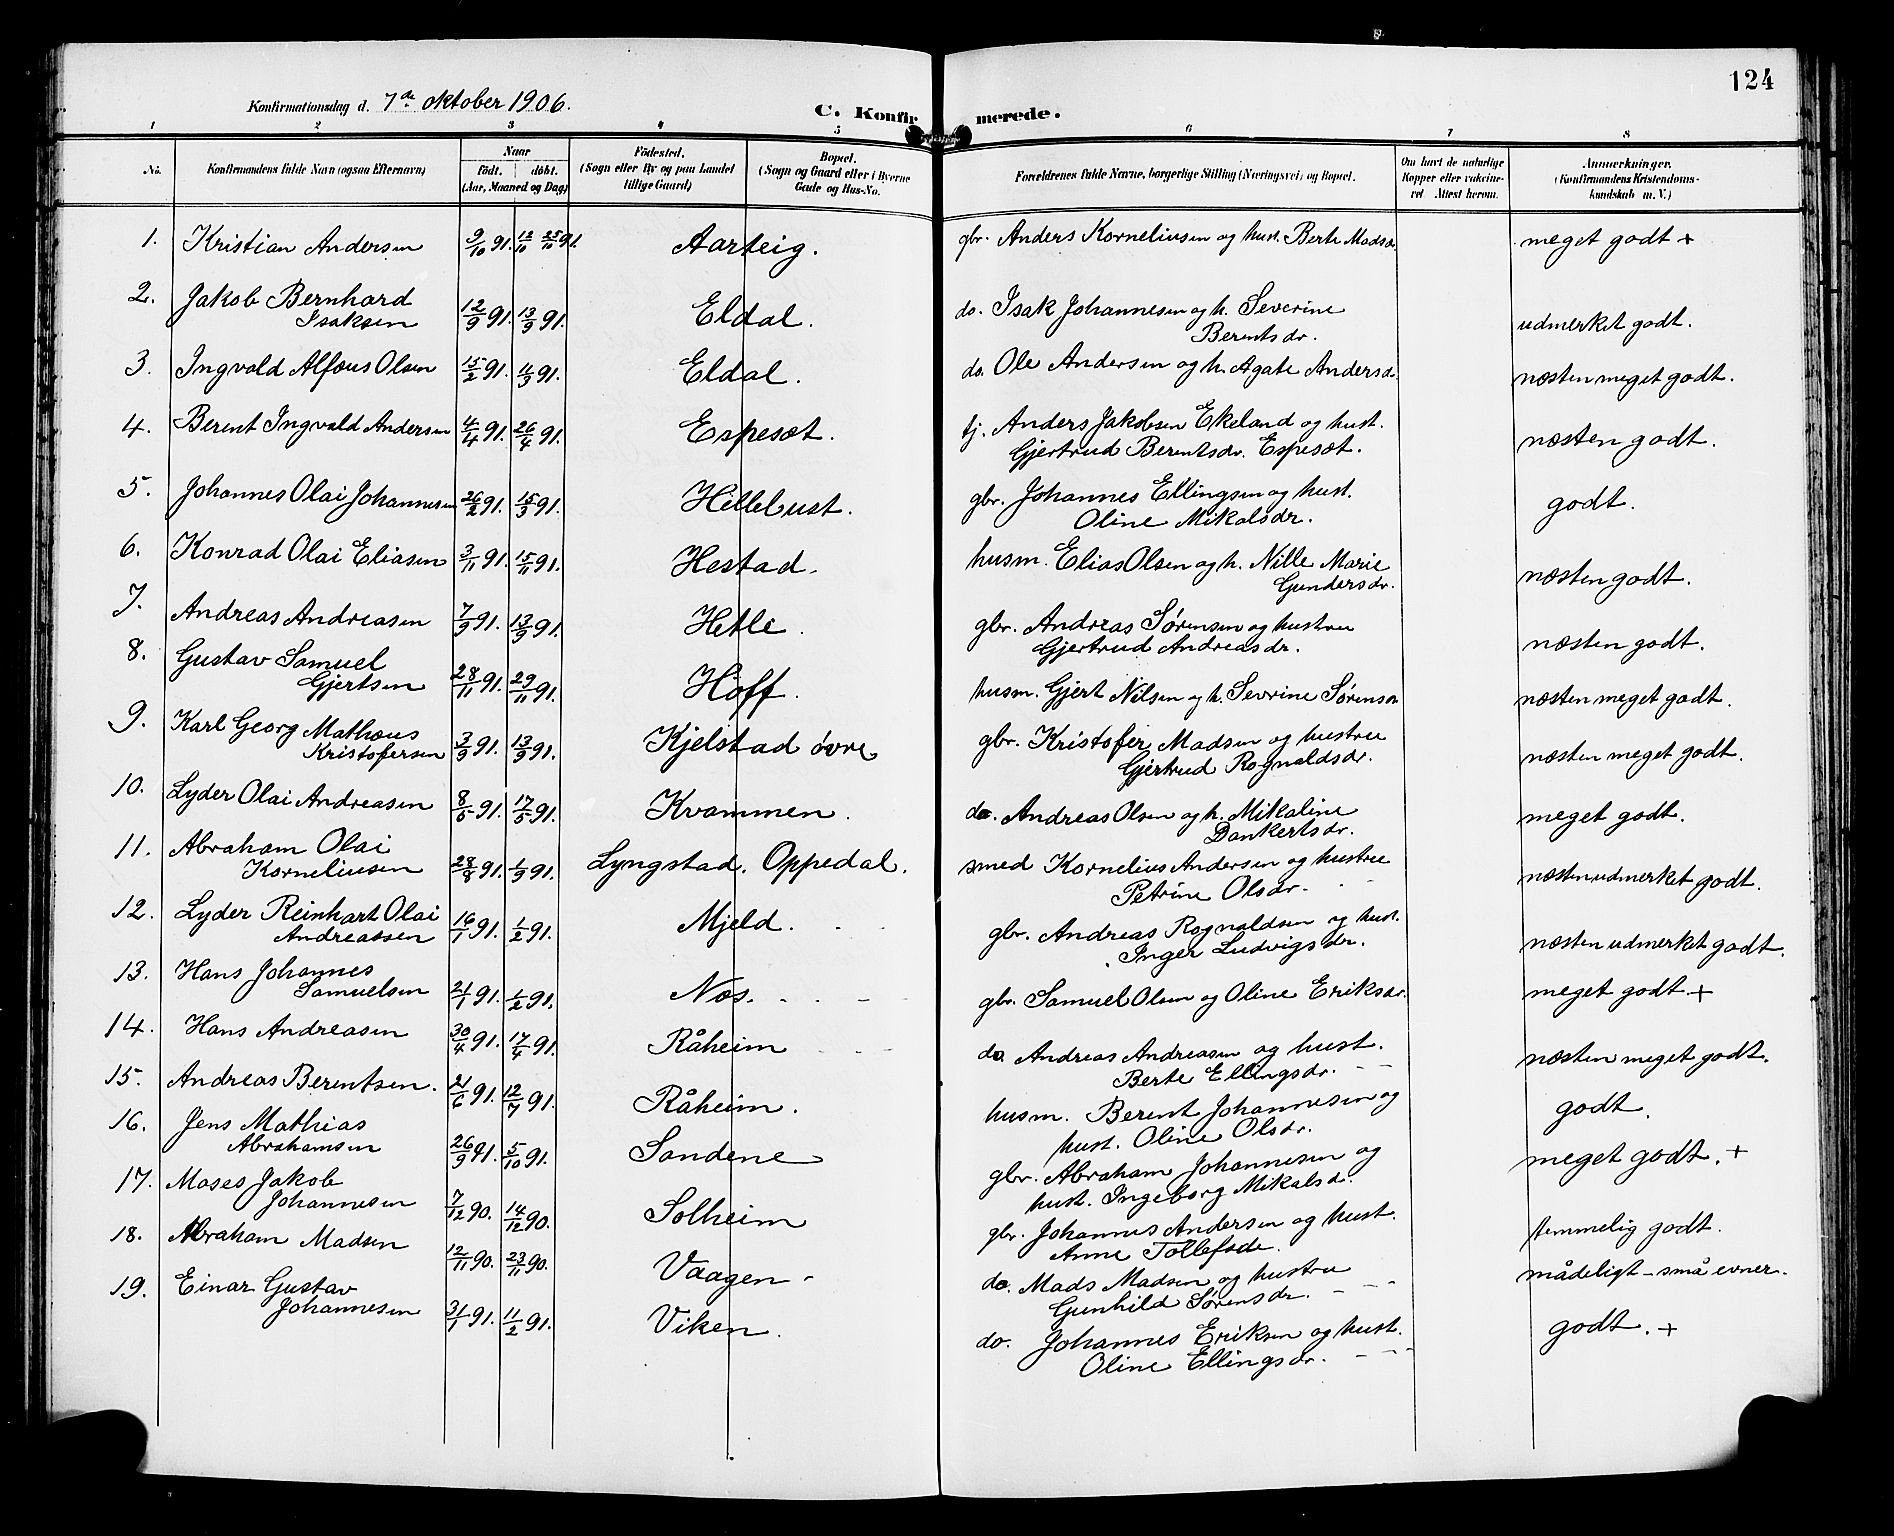 124
Konfirmationsdag d. 7de oktober 1906.
C. Konfirmerede.
1 2 3 4 5 6 7 8
No.
Konfirmandens fulde Navn (ogsaa Efternavn)
Naar
födt. döbt.
(Aar, Maaned og Dag)
Födested.
(Sogn eller By og paa Landet
tillige Gaard)
Bopæl.
(Sogn og Gaard eller i Byerne
Gade og Hus-No.
Forældrenes fulde Navne, borgerlige Stilling (Næringsvei) og Bopæl.
Om havt de naturlige
Kopper eller vakcine-
ret Attest herom.
Anmerkninger.
(Konfirmandens Kristendoms-
kundskab m. V.)
1. Kristian Andersen 9/10 91. 12/10 25/11 91. Aarteig. gbr. Anders Korneliusen og hust. Berte Madsdr. meget godt +
2. Jakob Bernhard
Isaksen 12/9 91. 13/9 91. Eldal. do. Isak Johannesen og h. Severine
Berentsdr. udmerket godt.
3. Ingvald Alfœus Olsen 15/2 91. 4/3 91. Eldal. do. Ole Andersen og h. Agate Andersdr. næsten meget godt.
4. Berent Ingvald Andersen 4/4 91. 26/4 91. Espesæt. tj. Anders Jakobsen Ekeland og hust.
Gjertrud Berentsdr. Espesæt. næsten godt.
5. Johannes Olai Johannesen 26/2 91. 15/3 91. Hellebust. gbr. Johannes Ellingsen og hust.
Oline Mikalsdr. godt.
6. Konrad Olai Eliasen 3/11 91. 15/11 91. Hestad. husm. Elias Olsen og h. Nille Marie
Gundersdr. næsten godt.
7. Andreas Andreasen 7/9 91. 13/9 91. Hetle. gbr. Andreas Sørensen og hustru
Gjertrud Andreasdr. næsten godt.
8. Gustav Samuel
Gjertsen 28/11 91. 29/11 91. Hoff. husm. Gjert Nilsen og h. Sevrine Sørensdr næsten meget godt.
9. Karl Georg Mathœus
Kristofersen 3/9 91. 13/9 91. Kjelstad övre gbr. Kristofer Madsen og hustru
Gjertrud Rognaldsdr. næsten meget godt.
10. Lyder Olai Andreasen 8/5 91. 17/5 91. Kvammen. do. Andreas Olsen og h. Mikaline
Dankertsdr. meget godt.
11. Abraham Olai
Korneliusen 28/8 91. 1/9 91. Lyngstad. Oppedal. smed Kornelius Andersen og hustru
Petrine Olsdr. næsten udmerket godt.
12. Lyder Reinhart Olai
Andreassen 16/1 91. 1/2 91. Mjeld. gbr. Andreas Rognaldsen og hust.
Inger Ludvigsdr. næsten udmerket godt.
13. Hans Johannes
Samuelsen 21/1 91. 1/2 91. Nœs. gbr. Samuel Olsen og Oline Eriksdr. meget godt +
14. Hans Andreasen 30/4 91. 17/4 91. Råheim do. Andreas Andreasen og hust.
Berte Ellingsdr. næsten meget godt.
15. Andreas Berentsen. 21/6 91. 12/7 91. Råheim. husm. Berent Johannesen og
hust. Oline Olsdr. godt.
16. Jens Mathias
Abrahamsen 26/9 91. 5/10 91. Sandene gbr. Abraham Johannesen og
hust. Ingeborg Mikalsd. meget godt. +
17. Moses Jakob
Johannesen 7/12 90. 14/12 90. Solheim gbr. Johannes Andersen og hust.
Anne Tollefsdr. temmelig godt.
18. Abraham Madsen 12/11 90. 23/11 90. Vaagen - do. Mads Madsen og hustru
Gunhild Sørensdr. mådeligt - små evner.
19. Einar Gustav
Johannesen 31/1 91. 11/2 91. Viken. do. Johannes Eriksen og hust.
Oline Ellingsdr. godt. +